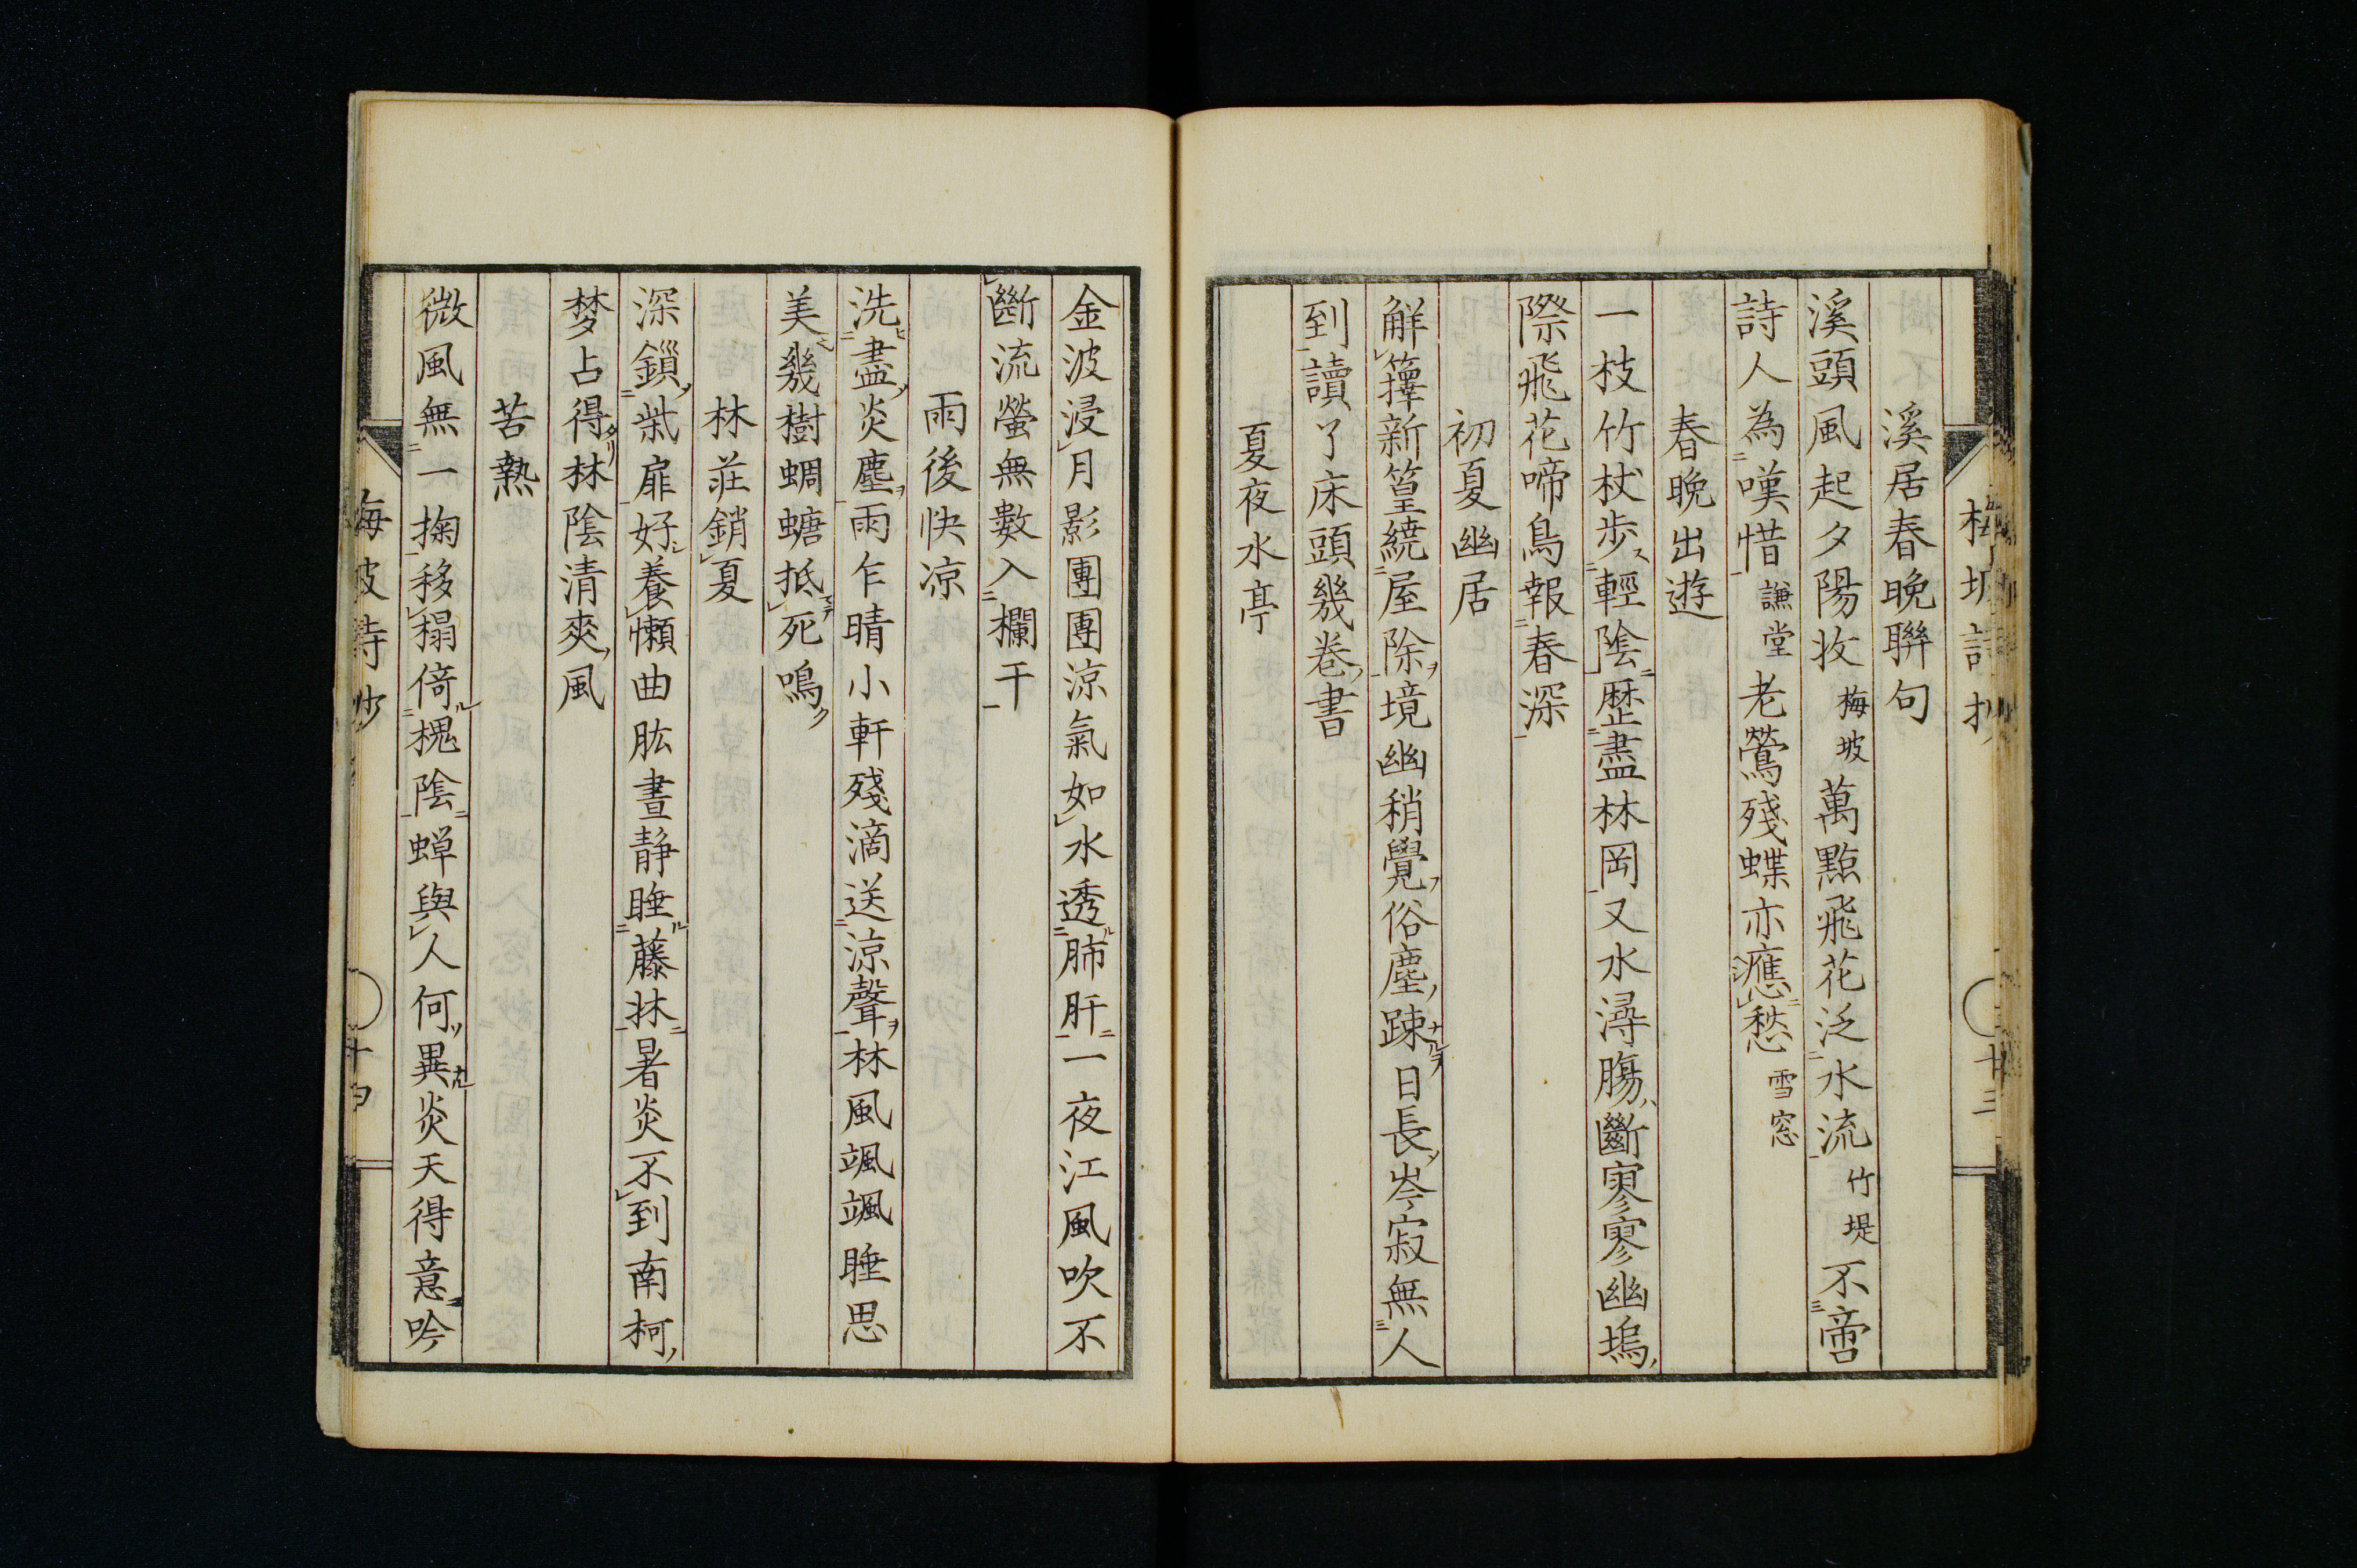 溪居春晩聨句
溪頭風起夕陽收 梅坡 萬點飛花泛水流 竹堤 不啻
詩人為嘆惜 謙堂 老鶯殘蝶亦應愁 雪窓
春晩出遊
一枝竹杖歩輕陰歴盡林岡又水潯腸斷寥寥幽塢
際飛花啼鳥報春深
初夏幽居
解籜新篁繞屋除境幽稍覺俗塵疎日長岑寂無人
到讀了床頭幾卷書
夏夜水亭
金波浸月影團團涼氣如水透肺肝一夜江風吹不
斷流螢無數入欄干
雨後快凉
洗盡炎塵雨乍晴小軒殘滴送涼聲林風颯颯睡思
美幾樹蜩螗抵死鳴
林荘銷夏
深鎖柴扉好養懶曲肱晝静睡藤牀暑炎不到南柯
梦占得林陰清爽風
苦熱
微風無一掬移榻倚槐陰蝉與人何異炎天得意吟
梅坡詩抄